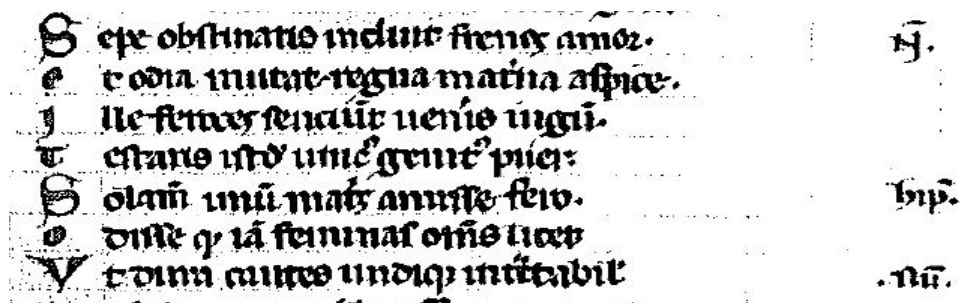 Sepe obstinatis induit frenos amor. N̄.
et odia mutat regna mat'na aspice.
jlle feroces senciūt uen'is iugū.
Testatis istd' unicꝰ genitꝰ puer:
Solam̄ unū mat's amisse fero. hip̄.
odisse q, iā feminas om̄s licet
Vt dura cautes undiqꝫ int'ctabil' . nū̄.